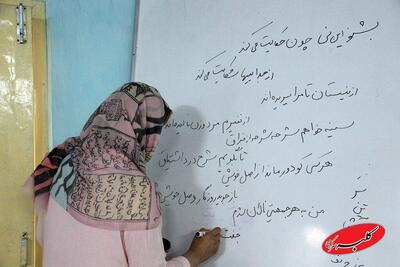 بشنو این نی چون حکایت می کند
از جداییها شکایت می کند
از نیستان تا مرا ببریده اند
از نفیرم مرد و زن نالیده اند
سینه خواهم شرحه شرحه از فراق
تا بگویم شرح درد اشتیاق
هر کسی کو دور ماند از اصل خویش
باز جوید روزگار وصل خویش
من به هر جمعیتی نالان شدم
جفت